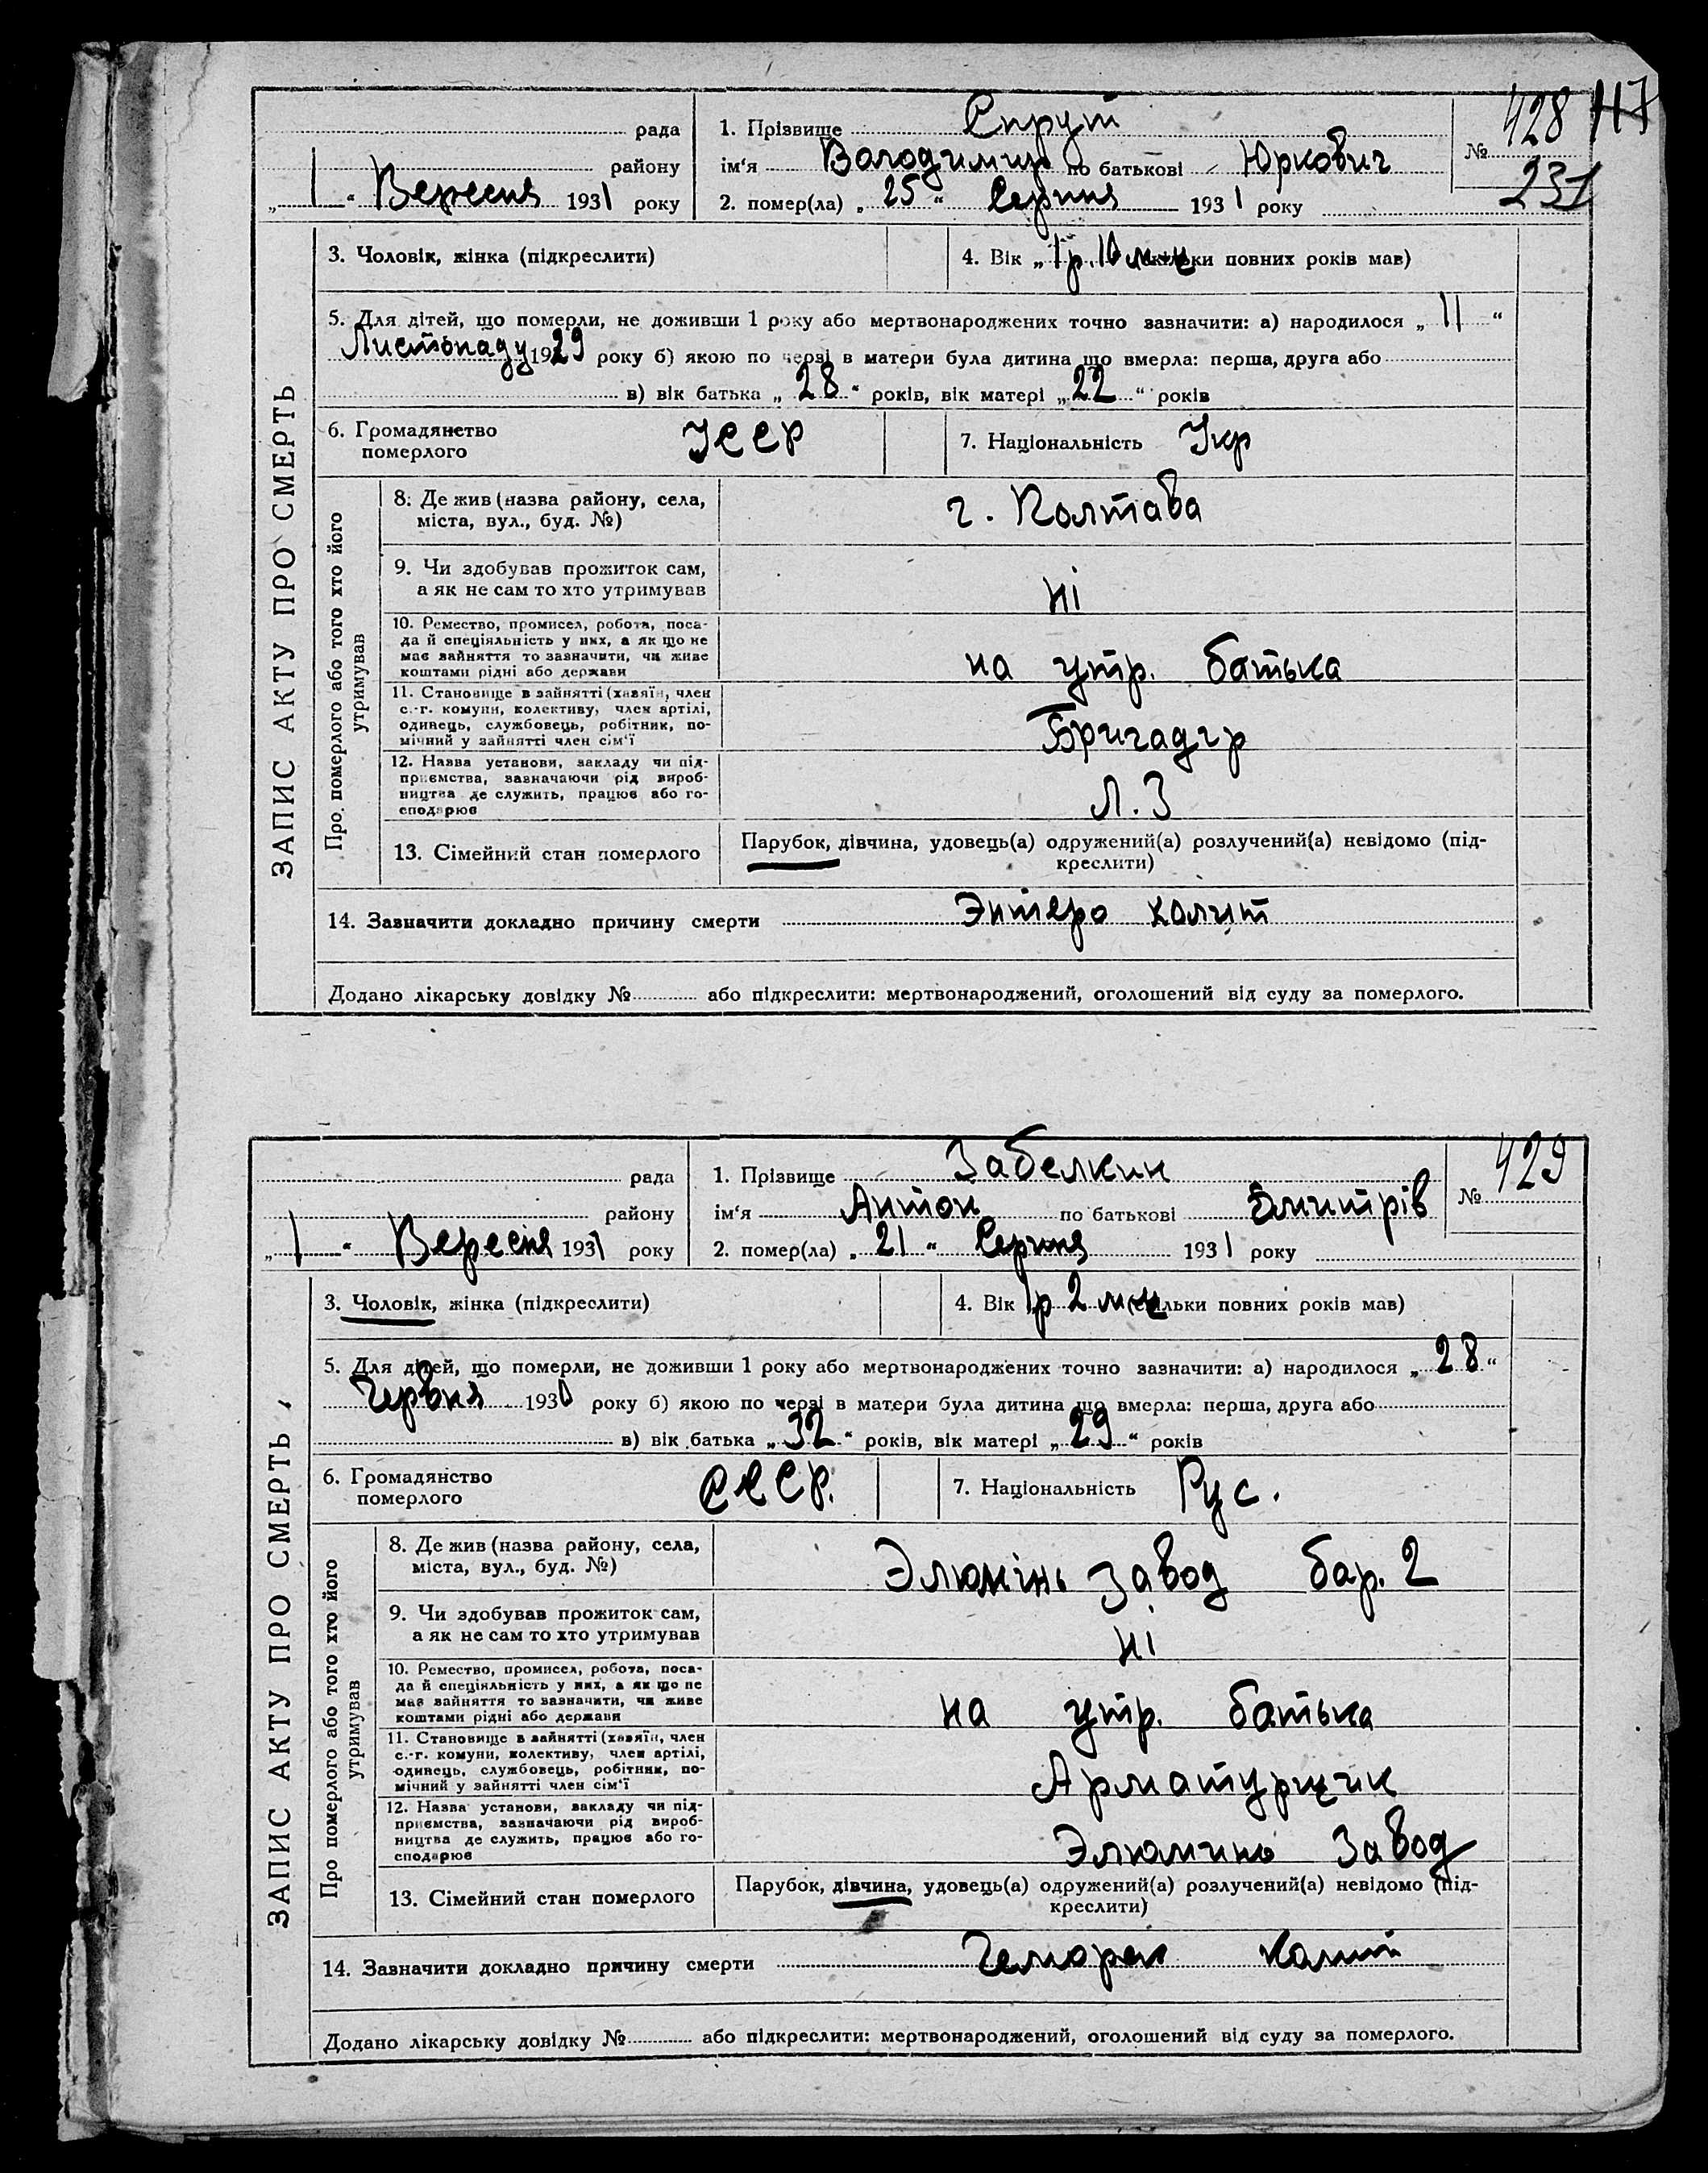 428 117
231
рада
району
„ 1 “ Вересня 1931 року
1. Прізвище Спрут
ім'я Володимир по батькові Юркович
2. помер(ла) „ 25 “ Серпня 1931 року
№
ЗАПИС АКТУ ПРО СМЕРТЬ
3. Чоловік, жінка (підкреслити)
4. Вік „ 1 р. 10 м-ц (скільки повних років мав)
5. Для дітей, що померли, не доживши 1 року або мертвонароджених точно зазначити: а) народилося „ 11 “
Листопаду 1929 року б) якою по черзі в матери була дитина що вмерла: перша, друга або
в) вік батька „ 28 “ років, вік матері „ 22 “ років
6. Громадянство
померлого
УССР
7. Національність Укр
Про померлого або того хто його
утримував
8. Де жив (назва району, села,
міста, вул., буд. №)
г. Полтава
9. Чи здобував прожиток сам,
а як не сам то хто утримував
Ні
10. Ремество, промисел, робота, поса-
да й спеціяльність у них, а як що не
має зайняття то зазначити, чи живе
коштами рідні або держави
на утр. батька
11. Становище в зайнятті (хазяїн, член
с.-г. комуни, колективу, член артілі,
одинець, службовець, робітник, по-
мічний у зайнятті член сім'ї
Бригадір
12. Назва установи, закладу чи під-
приємства, зазначаючи рід вироб-
ництва де служить, працює або го-
сподарює
Л. З
13. Сімейний стан померлого
Парубок, дівчина, удовець(а) одружений(а) розлучений(а) невідомо (під-
креслити)
14. Зазначити докладно причину смерти Энтеро колит
Додано лікарську довідку № або підкреслити: мертвонароджений, оголошений від суду за померлого.
429
рада
району
„ 1 “ Вересня 1931 року
1. Прізвище Забелкин
ім'я Антон по батькові Дмитрів
2. помер(ла) „ 21 “ Серпня 1931 року
№
ЗАПИС АКТУ ПРО СМЕРТЬ
3. Чоловік, жінка (підкреслити)
4. Вік „ 1 р 2 м-ц (скільки повних років мав)
5. Для дітей, що померли, не доживши 1 року або мертвонароджених точно зазначити: а) народилося „ 28 “
Червня 1930 року б) якою по черзі в матери була дитина що вмерла: перша, друга або
в) вік батька „ 32 “ років, вік матері „ 29 “ років
6. Громадянство
померлого
СССР.
7. Національність Рус.
Про померлого або того хто його
утримував
8. Де жив (назва району, села,
міста, вул., буд. №)
Элюмінь завод бар. 2
9. Чи здобував прожиток сам,
а як не сам то хто утримував
Ні
10. Ремество, промисел, робота, поса-
да й спеціяльність у них, а як що не
має зайняття то зазначити, чи живе
коштами рідні або держави
на утр. батька
11. Становище в зайнятті (хазяїн, член
с.-г. комуни, колективу, член артілі,
одинець, службовець, робітник, по-
мічний у зайнятті член сім'ї
Арматурщик
12. Назва установи, закладу чи під-
приємства, зазначаючи рід вироб-
ництва де служить, працює або го-
сподарює
Элюминь Завод
13. Сімейний стан померлого
Парубок, дівчина, удовець(а) одружений(а) розлучений(а) невідомо (під-
креслити)
14. Зазначити докладно причину смерти Гемораг Колит
Додано лікарську довідку № або підкреслити: мертвонароджений, оголошений від суду за померлого.